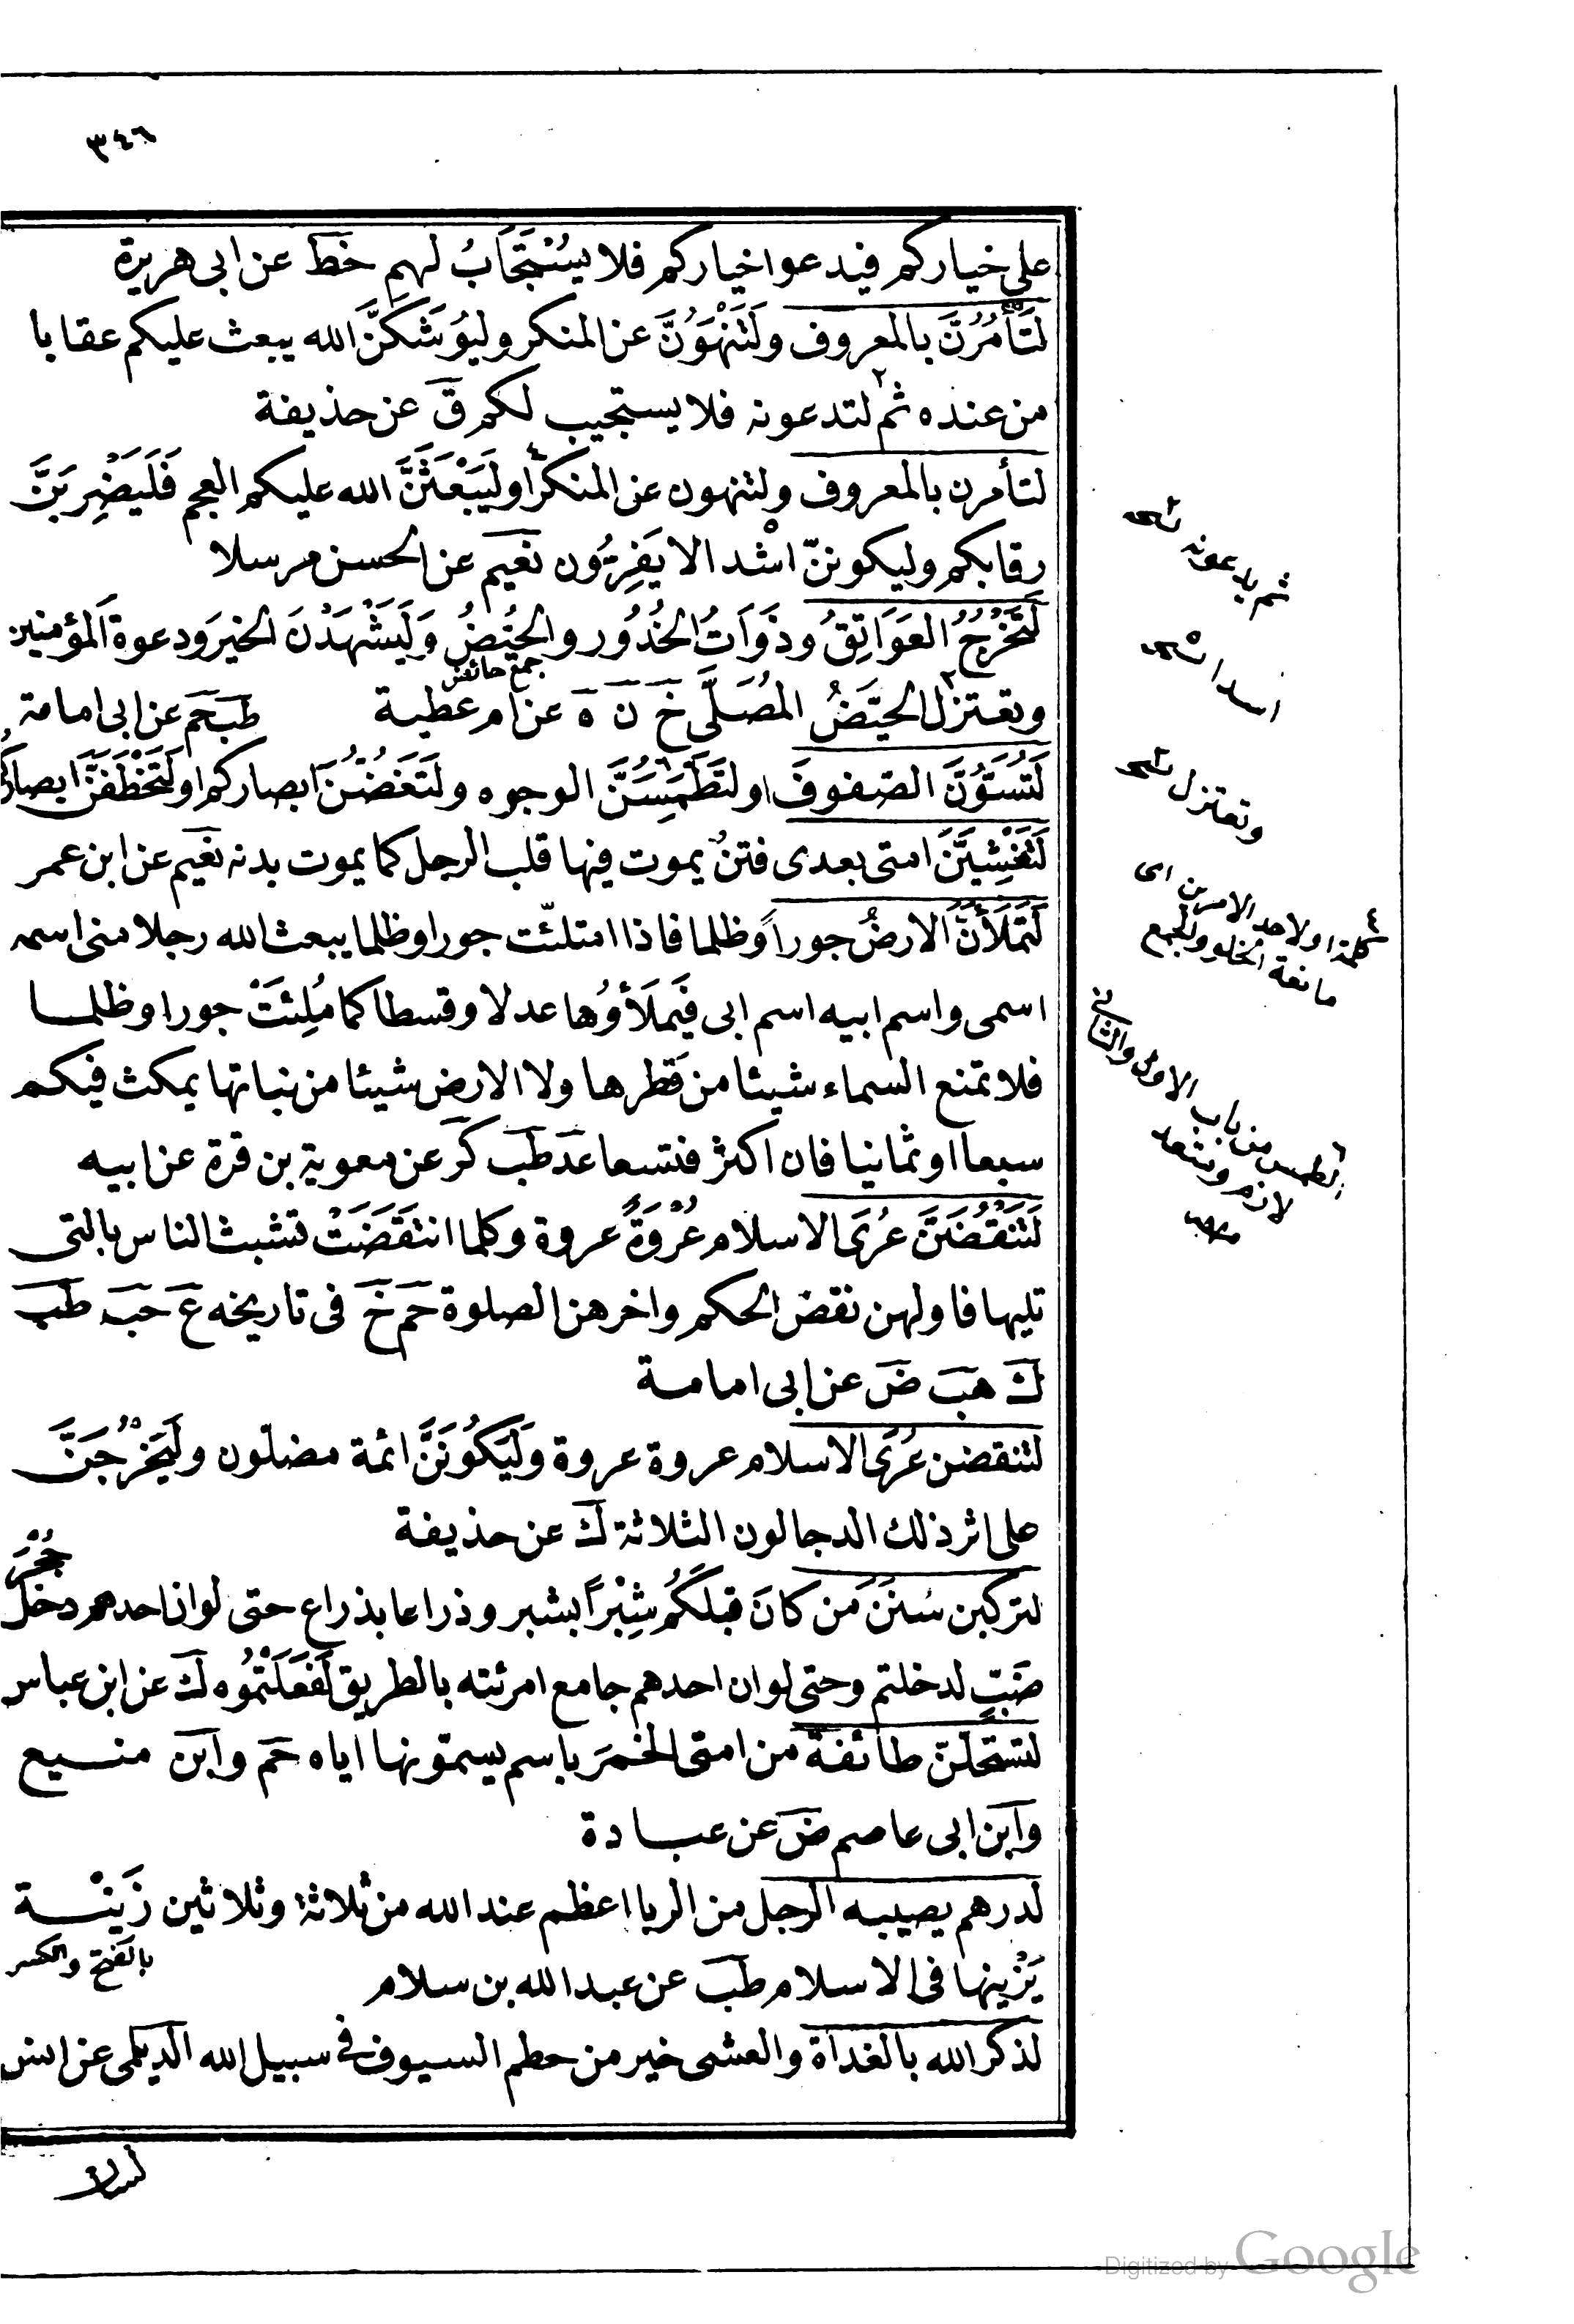 ٣٤٦
على خياركم فيدعوا خياركم فلا يُسْتَجَابُ لهم خط عن ابى هريرة
لَتَأْمُرُنَّ بالمعروف ولَتَنْهَوُنَّ عن المنكر وليُوشَكَنَّ الله يبعث عليكم عقابا
من عنده ثم لتدعونه فلا يستجيب لكم ق عن حذيفة
لتأمرن بالمعروف ولتنهون عن المنكر او لَيَبْعَثَنَّ الله عليكم العجم فَلَيَضْرِبَنَّ
رقابكم وليكوننّ اشد الا يَفِرُّون نعيم عن الحسن مرسلا
لَتَخْرُجُ العَوَاتِقُ وذَوَاتُ الخُدُور والحُيَّضُ وَلَيَشْهَدْنَ الخيرَ ودعوة المؤمنين
جمع حائض
وتعتزل الحيَّضُ المُصَلَّى خ ن ه عن ام عطية
طب حم عن ابى امامة
لَتُسَوُّنَّ الصفوفَ او لتَطْمَسَنَّ الوجوه ولَتَغَضُنَّ ابصاركم او لَتَخْطَفَنَّ ابصاركم
لَتَغْشِيَنَّ امتى بعدى فتنٌ يموت فيها قلب الرجل كما يموت بدنه نعيم عن ابن عمر
لَتَمْلَأَنَّ الارضُ جوراً وظلما فاذا امتلئت جورا وظلما يبعث الله رجلا منى اسمه
اسمى واسم ابيه اسم ابى فَيَمْلَأُوها عدلا وقسطا كما مُلِئَتْ جورا وظلما
فلا تمنع السماء شيئا من قطرها ولا الارض شيئا من نباتها يمكث فيكم
سبعا او ثمانيا فان اكثر فتسعا عد طب كر عن معوية بن قرة عن ابيه
لَتَنْقُضَنَّ عُرَى الاسلام عُرْوَةً عروة وكلما انتَقَضَتْ تشبث الناس بالتى
تليها فاولهن نقض الحكم واخرهن الصلوة حم خ فى تاريخه ع حب طب
ك هب ض عن ابى امامة
لتنقضن عُرَى الاسلام عروة عروة وَلَيَكُونَنَّ ائمة مضلون ولَيَخْرُجَنَّ
على اثر ذلك الدجالون الثلاثة ك عن حذيفة
جُحْرَ
لتركبن سُنَنَ مَن كانَ قبلَكُم شِبْراً بشبر وذراعا بذراع حتى لو ان احدهم دخل
ضَبٍّ لدخلتم وحتى لو ان احدهم جامع امرئته بالطريق لَفَعَلْتُمُوه ك عن ابن عباس
لتستحلنّ طائفة من امتى الخمرَ باسم يسمّونها اياه حم وابن منيع
وابن ابى عاصم ض عن عبادة
لدرهم يصيبه الرجل من الربا اعظم عند الله من ثلاثة وثلاثين زَيْنَة
بالفتح والكسر
يَزْنيها فى الاسلام طب عن عبد الله بن سلام
لذكر الله بالغداة والعشى خير من حطم السيوف فى سبيل الله الديلمى عن انس
ثم يدعونه
وتعتزل
كلمة او لاحد الامرين اى
مانعة الخلو والجمع
الطمس من باب الاول والثانى
لازم ومتعد
Digitized by Google